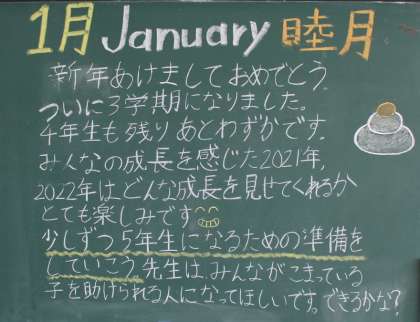 1月 January 睦月
新年あけましておめでとう。
ついに3学期になりました。
4年生も残りあとわずかです。
みんなの成長を感じた2021年,
2022年はどんな成長を見せてくれるか
とても楽しみです
少しずつ5年生になるための準備を
していこう。先生は、みんながこまっている
子を助けられる人になってほしいです。できるかな?